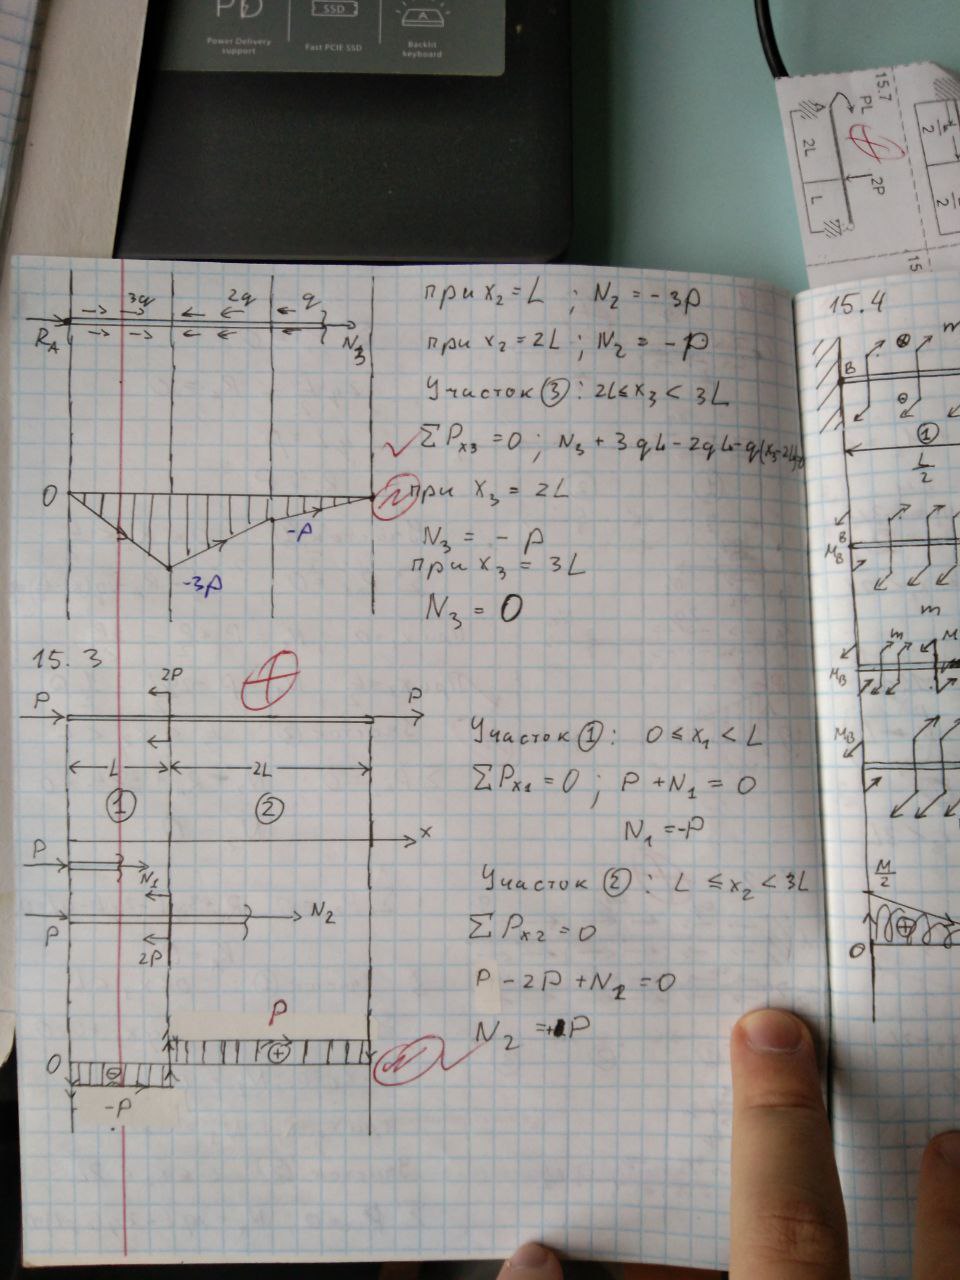 PD
SSD
A
Power Delivery
support
Fast PCIE SSD
Backlit
keyboard
15.7
PL
A
2L
L
2P
15
3q
2q
q
R_A
N_3
0
-3P
-P
N
при x₂ = L ; N₂ = -3P
при x₂ = 2L ; N₂ = -P
Участок ③ : 2L ≤ x₃ < 3L
ΣPx₃ = 0 ; N₃ + 3qL - 2qL - q(x₃-2L)
при x₃ = 2L
N₃ = - P
при x₃ = 3L
N₃ = 0
15.3
2P
P
P
L
2L
①
②
x
P
N₁
N₂
P
2P
P
0
⊖
⊕
-P
N
Участок ① : 0 ≤ x₁ < L
ΣPx₁ = 0 ; P + N₁ = 0
N₁ = -P
Участок ② : L ≤ x₂ < 3L
ΣPx₂ = 0
P - 2P + N₂ = 0
N₂ = +P
15.4
B
m
⊗
①
L/2
B
M_B
m
m
M
M_B
M_B
M/2
⊕
0